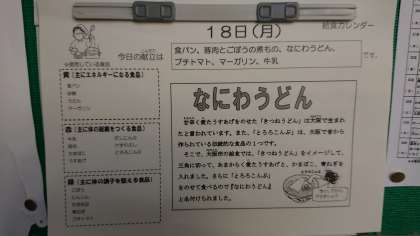 給食カレンダー
18日(月)
今日の献立は
食パン、豚肉とごぼうの煮もの、なにわうどん、
プチトマト、マーガリン、牛乳
です。
黄(主にエネルギーになる食品)
食パン
砂糖
うどん
マーガリン
赤(主に体の組織をつくる食品)
牛乳
豚肉
うすあげ
とろろこんぶ
緑(主に体の調子を整える食品)
ごぼう
にんじん
プチトマト
なにわうどん
甘辛く煮たうすあげをのせた「きつねうどん」は大阪で生まれ
たと言われています。また、「とろろこんぶ」は、大阪で昔から
作られている伝統的な食品の1つです。
そこで、大阪市の給食では、「きつねうどん」をイメージして、
三角に切って、あまからく煮たうすあげと、かまぼこ、青ねぎを
入れました。さらにとろろこんぶ
をのせて食べるので『なにわうどん』
と名付けられました。